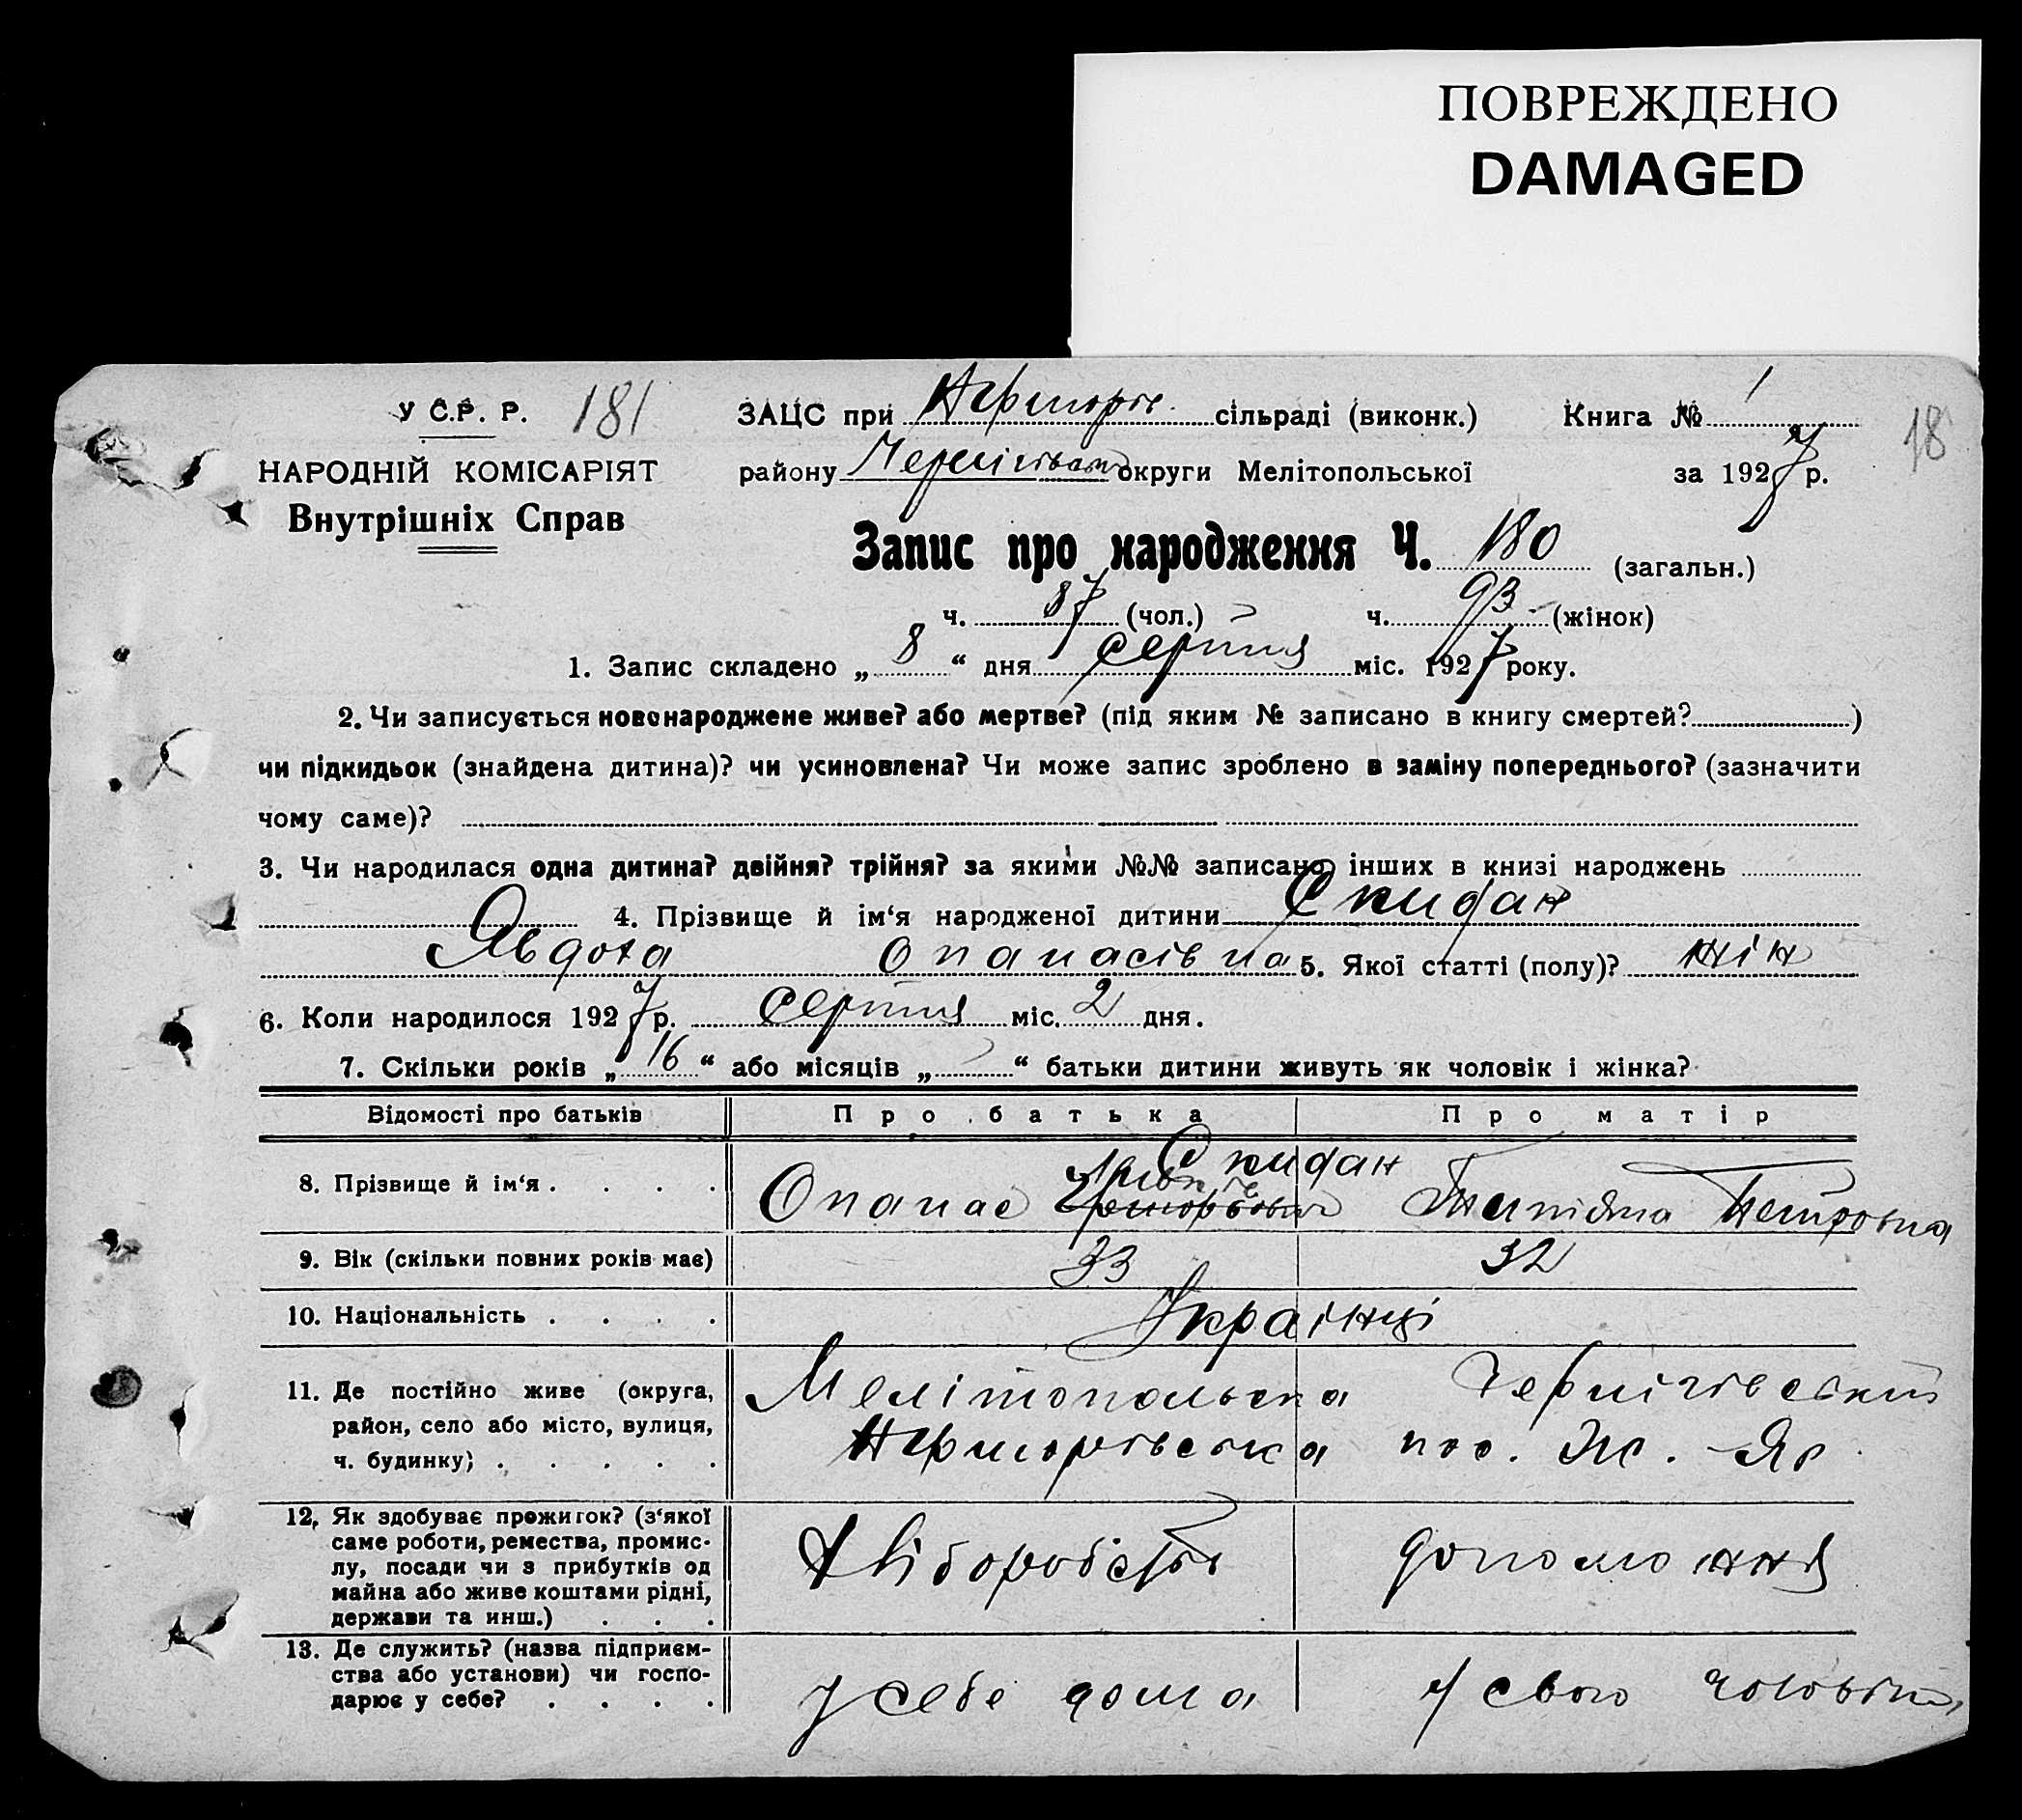 ПОВРЕЖДЕНО
DAMAGED
У С.Р. Р. 181 ЗАЦС при сільраді (виконк.) Книга № 1
18
НАРОДНІЙ КОМІСАРІЯТ району округи Мелітопольської за 1927 р.
Внутрішніх Справ
Запис про народження Ч. 180 (загальн.)
ч. 87 (чол.) ч. 93 (жінок)
1. Запис складено „ 8 “ дня серпня міс. 1927 року.
2. Чи записується новонароджене живе? або мертве? (під яким № записано в книгу смертей? )
чи підкидьок (знайдена дитина)? чи усиновлена? Чи може запис зроблено в заміну попереднього? (зазначити
чому саме)?
3. Чи народилася одна дитина? двійня? трійня? за якими №№ записано інших в книзі народжень
4. Прізвище й ім‘я народженої дитини Скидан
Явдоха Опанасівна 5. Якої статті (полу)? жін
6. Коли народилося 1927 р. серпня міс. 2 дня.
7. Скільки років „ 16 “ або місяців „ “ батьки дитини живуть як чоловік і жінка?
Відомості про батьків Про батька Про матір
Скидан
8. Прізвище й ім‘я . . . . Опанас Петровна
9. Вік (скільки повних років має) 33 32
10. Національність . . . . Українці
11. Де постійно живе (округа, Мелітопольска Чернігівський
район, село або місто, вулиця,
ч. будинку) . . . . . пос.
12. Як здобуває прожиток? (з‘якої
саме роботи, ремества, промис-
лу, посади чи з прибутків од Хліборобство
майна або живе коштами рідні,
держави та инш.) . . .
13. Де служить? (назва підприєм-
ства або установи) чи госпо-
дарює у себе? . . . . у себе дома у свого чоловіка